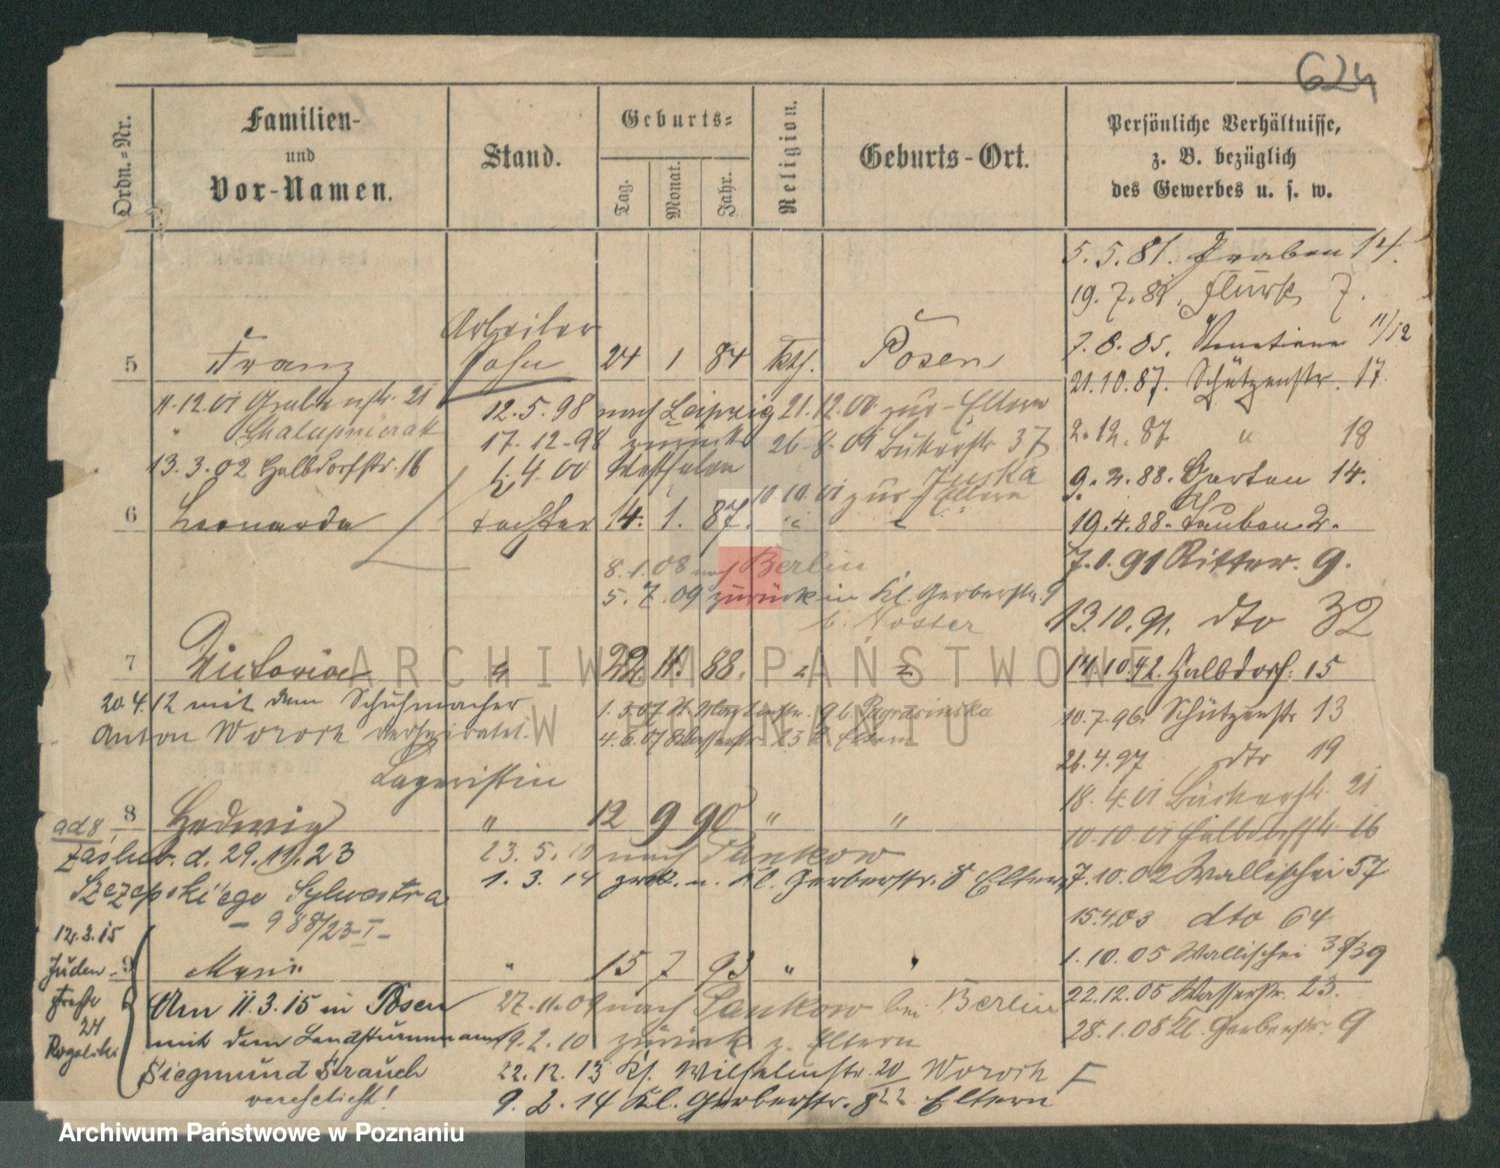 624
Ordn.-Nr.
Familien-
und
Vor-Namen.
Stand.
Geburts-
Tag.
Monat.
Jahr.
Religion.
Geburts-Ort.
Persönliche Verhältnisse,
z. B. bezüglich
des Gewerbes u. s. w.
5.5.81. Graben 14.
19.7.81. Flurstr. 7.
7.8.85. Venetianer 11/12
21.10.87. Schützenstr. 17
2.12.87 " 18
9.2.88. Garten 14.
19.4.88. Tauben 2.
91 Ritter. 9.
13.10.91. dto 32
14.10.92. Halbdorf. 15
10.7.96. Schützenstr 13
26.4.97 dto 19
18.4.01 Bäckerstr. 21
10.10.01 Halbdorfstr 16
7.10.02 Wallischei 57
15.4.03 dto 64
1.10.05 Wallischei 38/39
22.12.05 Wasserstr. 23.
28.1.08 Kl. Gerberstr. 9
5 Franz Arbeiter
sohn 24 1 84 kth. Posen
11.12.01 21
12.5.98 nach Leipzig 21.12.00 zur Eltern
17.12.98 zurück 26.8.01 Bäckerstr. 37
13.3.02 Halbdorfstr. 16
1.4.00 Westfalen
10.10.01 zur Eltern
6 Leonarda Tochter 14. 1. 87. " "
8.1.08 nach Berlin
5.7.09 zurück in Kl. Gerberstr. 9
7 Victoria " 22 11. 88. " "
20.4.12 mit dem Schuhmacher
Anton Woroch verheiratet.
1.3.07
4.6.07 Wasserstr. 23 b. Eltern
Lageristin
8 Hedwig " 12 9 90 " "
ad 8.
zaślub. d. 29.11.23
23.5.10 nach Pankow
1.3.14 zrck. n. Kl. Gerberstr. 8 Eltern
Szczepskiego Sylwestra
- 988/23-I -
12.3.15
Juden-
straße
24
Rogaliski
9 Marie " 15 7 93 " "
Am 11.3.15 in Posen
27.11.09 nach Pankow bei Berlin
mit dem Landsturmmann
19.2.10 zurück z. Eltern
Siegmund Strauch
22.12.13 Ks. Wilhelmstr. 20 Woroch
verehelicht!
9.2.14 Kl. Gerberstr. 8 Eltern
ARCHIWUM PAŃSTWOWE
W POZNANIU
Archiwum Państwowe w Poznaniu